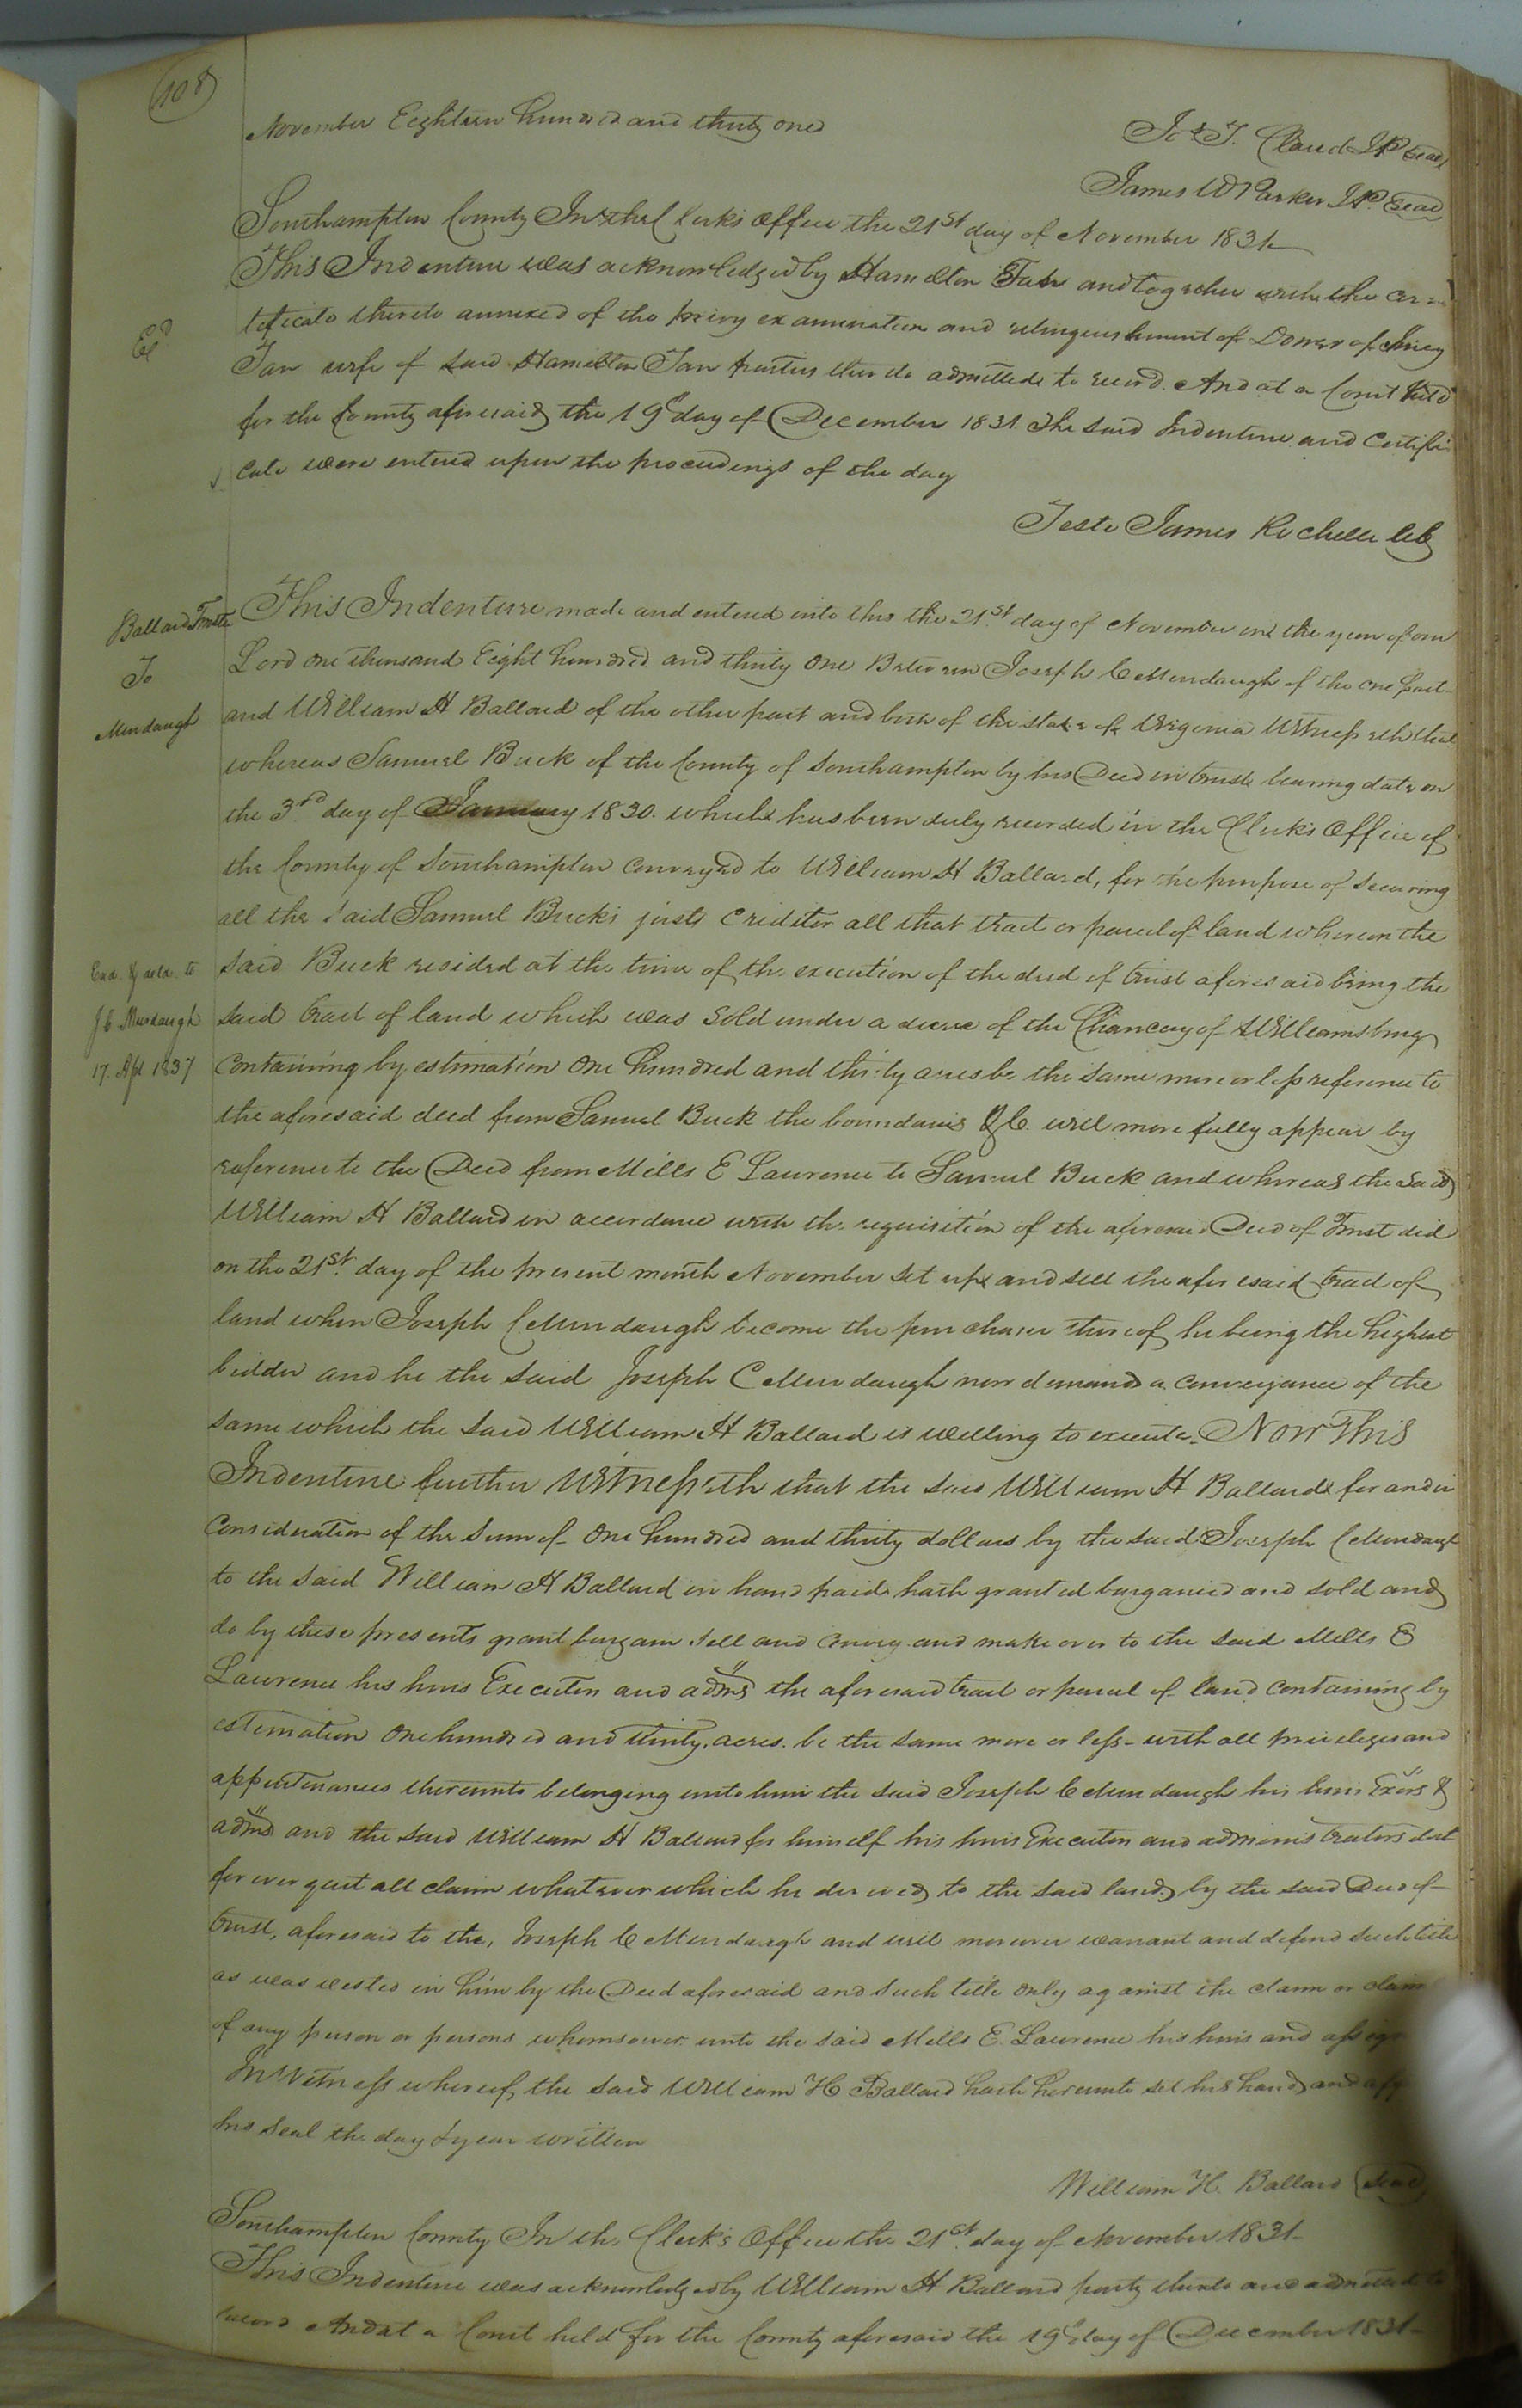 108
November Eighteen hundred and thirty one
Jo T. Claud JP Seal
James W Parker J.P. Seal
Southampton County In the Clerks office the 21st day of November 1831
This Indenture was acknowledged by Hamilton and together with the cer
tificate thereto annexed of the privy examination and relinquishment of Dower of
wife of said Hamilton parties thereto admitted to record. And at a Court held
for the County aforesaid the 19th day of December 1831 The said Indenture and Certifi
cate were entered upon the proceedings of the day
Ed
Teste James Rochelle
Ballard Trustee
To
Murdaugh
This Indenture made and entered into this the 21st day of November in the year of our
Lord one thousand Eight hundred and thirty one Between Joseph C Murdaugh of the one part
and William H Ballard of the other part and both of the state of Virginia Witnesseth that
whereas Samuel Buck of the County of Southampton by his Deed in trust bearing date on
the 3rd day of January 1830. which has been duly recorded in the Clerks Office of
the County of Southampton conveyed to William H Ballard, for the purpose of securing
all the said Samuel Bucks just creditor all that tract or parcel of land whereon the
Exd. & deld. to
J C. Murdaugh
17. Apl 1837
said Buck resided at the time of the execution of the deed of trust aforesaid being the
said tract of land which was sold under a decree of the Chancery of Williamsburg
containing by estimation one hundred and thirty acres be the same more or less reference to
the aforesaid deed from Samuel Buck the boundaries &C. will more fully appear by
reference to the Deed from Mills E Lawrence to Samuel Buck and whereas the said
William H Ballard in accordance with the requisition of the aforesaid Deed of Trust did
on the 21st. day of the present month November set up and sell the aforesaid tract of
land when Joseph C Murdaugh become the purchaser thereof he being the highest
bidder and he the said Joseph C Murdaugh now demands a conveyance of the
same which the said William H Ballard is willing to execute. Now This
Indenture further Witnesseth that the said William H Ballard for and in
consideration of the sum of one hundred and thirty dollars by the said Joseph C Murdaugh
to the said William H Ballard in hand paid hath granted barganied and sold and
do by these presents grant bargain sell and convey and make over to the said Mills E
Lawrence his heirs Executors and adms the aforesaid tract or parcel of land containing by
estimation one hundred and thirty. acres. be the same more or less - with all priveleges and
appurtenances thereunto belonging unto him the said Joseph C Murdaugh his heirs Exors &
adms and the said William H Ballard for himself his heirs Executors and administrators doth
for ever quit all claim whatever which he derived to the said land by the said Deed of
trust, aforesaid to the, Joseph C Murdaugh and will moreover warrant and defend such title
as was vested in him by the Deed aforesaid and such title only against the claim or claims
of any person or persons whomsoever unto the said Mills E. Lawrence his heirs and assigns
In Witness whereof the said William H Ballard hath hereunto set his hand and
his seal the day & year written
William H. Ballard Seal
Southampton County In the Clerk's Office the 21st. day of November 1831-
This Indenture was acknowledged by William H Ballard party thereto and admitted to
record And at a Court held for the County aforesaid the 19th day of December 1831-